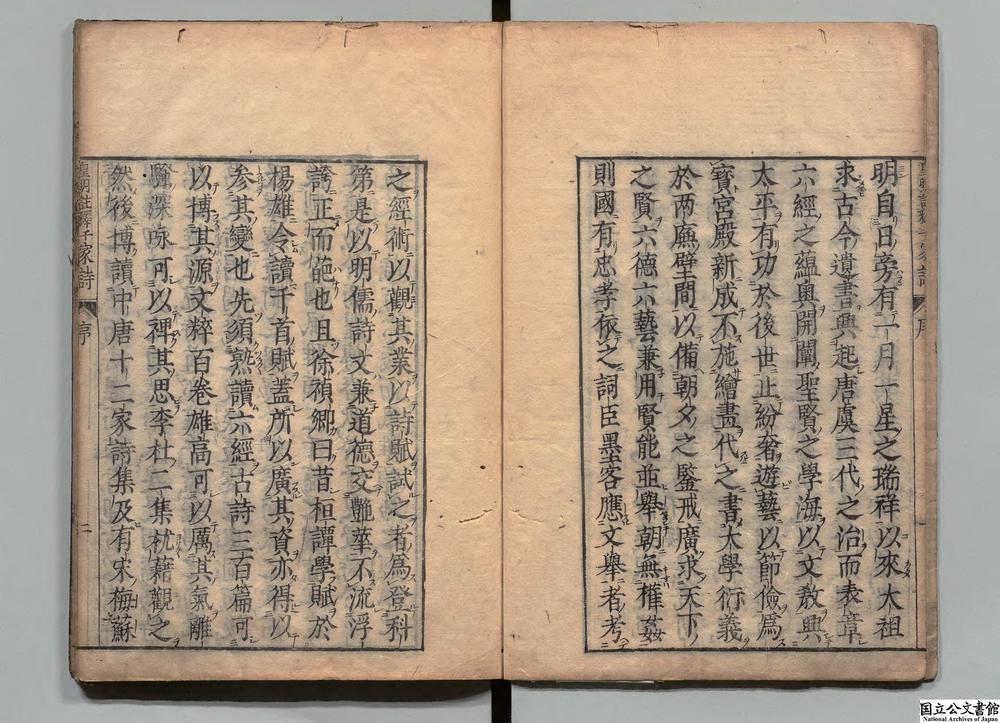 明自日旁有一月一星之瑞祥以來大祖
求古今遺書興起唐虞三代之治而表章
六經之蘊奧開闡聖賢之學海以文教興
太平有功於後世止紛奢遊藝以節儉爲
寳宮殿新成不施繪畫代之書大學衍義
於两廡壁間以備朝夕之鑒戒廣求天下
之賢六德六藝兼用賢能並舉朝無權姦
則國有忠孝依之詞臣墨客應文舉者考
之經術以觀其業以詩賦試之者爲登科
第是以明儒詩文兼道德交艷華不流浮
誇正而葩也且徐禎卿曰昔桓譚學賦於
楊雄令讀千首賦蓋所以廣其資亦得以
参其變也先須熟讀六經古詩三百篇可
以博其源文粹百卷雄高可以厲其氣離
騷深咏可以裨其思李杜二集枕藉觀之
然後博讀中唐十二家詩集及有宋梅蘇
皇明註釋千家詩
序
二
国立公文書館
National Archives of Japan